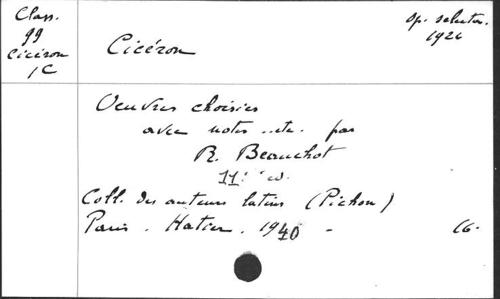 Class.
99
Cicéron
1C
Cicéron
Op. selecta.
1926
Oeuvres choisies
avec notes etc. par
R. Beauchot
11e ed.
Coll. des auteurs latins (Pichon)
Paris. Hatier. 1940 - 16.